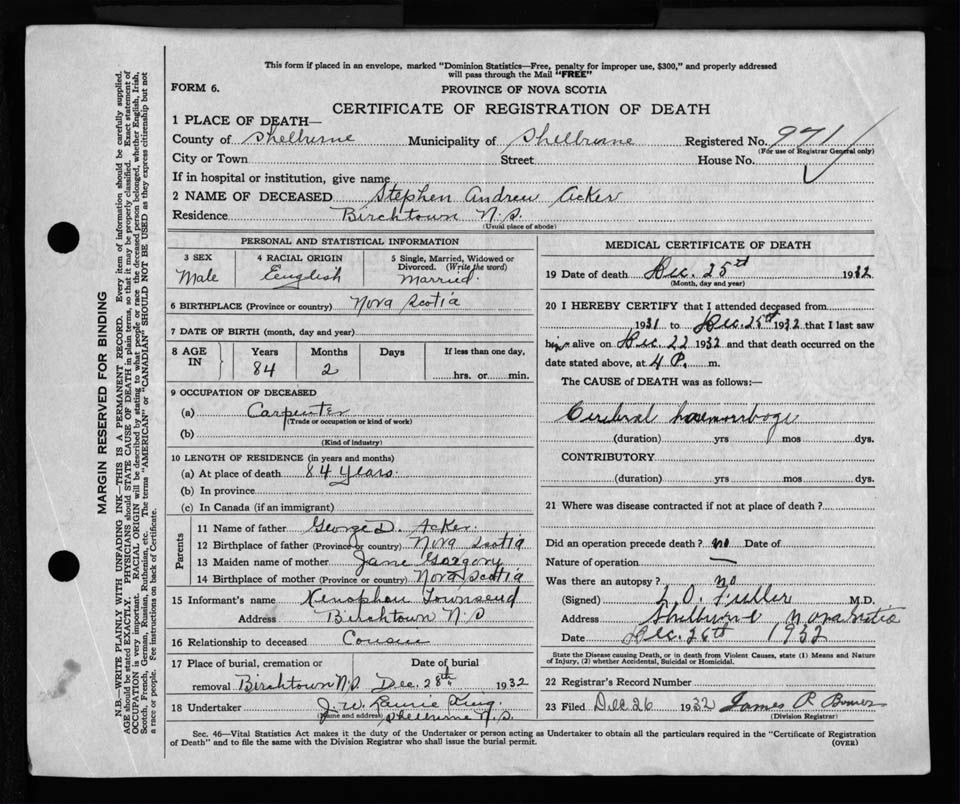 This form if placed in an envelope, marked "Dominion Statistics—Free, penalty for improper use, $300," and properly addressed
will pass through the Mail "FREE"
FORM 6.
PROVINCE OF NOVA SCOTIA
CERTIFICATE OF REGISTRATION OF DEATH
1 PLACE OF DEATH—
County of Shelburne Municipality of Shelburne Registered No. 971
(For use of Registrar General only)
City or Town Street House No.
If in hospital or institution, give name
2 NAME OF DECEASED Stephen Andrew Acker
Residence Birchtown N.S.
(Usual place of abode)
PERSONAL AND STATISTICAL INFORMATION
3 SEX 4 RACIAL ORIGIN 5 Single, Married, Widowed or
Divorced. (Write the word)
Male English Married.
6 BIRTHPLACE (Province or country) Nova Scotia
7 DATE OF BIRTH (month, day and year)
8 AGE IN Years Months Days If less than one day,
84 2 hrs. or min.
9 OCCUPATION OF DECEASED
(a) Carpenter
(Trade or occupation or kind of work)
(b)
(Kind of industry)
10 LENGTH OF RESIDENCE (in years and months)
(a) At place of death 84 years.
(b) In province
(c) In Canada (if an immigrant)
Parents
11 Name of father George D. Acker.
12 Birthplace of father (Province or country) Nova Scotia
13 Maiden name of mother Jane
14 Birthplace of mother (Province or country) Nova Scotia
15 Informant's name Xenophon Townsend
Address Birchtown N.S
16 Relationship to deceased Cousin
17 Place of burial, cremation or Date of burial
removal Birchtown N.S. Dec. 28th 1932
18 Undertaker J. W. Laurie King.
Name and address Shelburne N.S.
MEDICAL CERTIFICATE OF DEATH
19 Date of death Dec. 25th 1932
(Month, day and year)
20 I HEREBY CERTIFY that I attended deceased from
1931 to Dec. 25th 1932 that I last saw
him alive on Dec 22 1932 and that death occurred on the
date stated above, at 4 P. m.
The CAUSE of DEATH was as follows:—
Cerebral haemorrhage
(duration) yrs mos dys.
CONTRIBUTORY
(duration) yrs mos dys.
21 Where was disease contracted if not at place of death?
Did an operation precede death? no Date of
Nature of operation —
Was there an autopsy? no
(Signed) L. O. Fuller M.D.
Address Shelburne Nova Scotia
Date Dec. 26th 1932
State the Disease causing Death, or in death from Violent Causes, state (1) Means and Nature
of Injury, (2) whether Accidental, Suicidal or Homicidal.
22 Registrar's Record Number
23 Filed Dec 26 1932 James P. Bower
(Division Registrar)
Sec. 46—Vital Statistics Act makes it the duty of the Undertaker or person acting as Undertaker to obtain all the particulars required in the "Certificate of Registration
of Death" and to file the same with the Division Registrar who shall issue the burial permit.
(OVER)
MARGIN RESERVED FOR BINDING
N.B.—WRITE PLAINLY WITH UNFADING INK—THIS IS A PERMANENT RECORD. Every item of information should be carefully supplied.
AGE should be stated EXACTLY. PHYSICIANS should STATE CAUSE OF DEATH in plain terms, so that it may be properly classified. Exact statement of
OCCUPATION is very important. RACIAL ORIGIN will be described by stating to what people or race the deceased person belonged, whether English, Irish,
Scotch, French, German, Russian, Ruthenian, etc. The terms "AMERICAN" or "CANADIAN" SHOULD NOT BE USED as they express citizenship but not
a race or people. See instructions on back of Certificate.